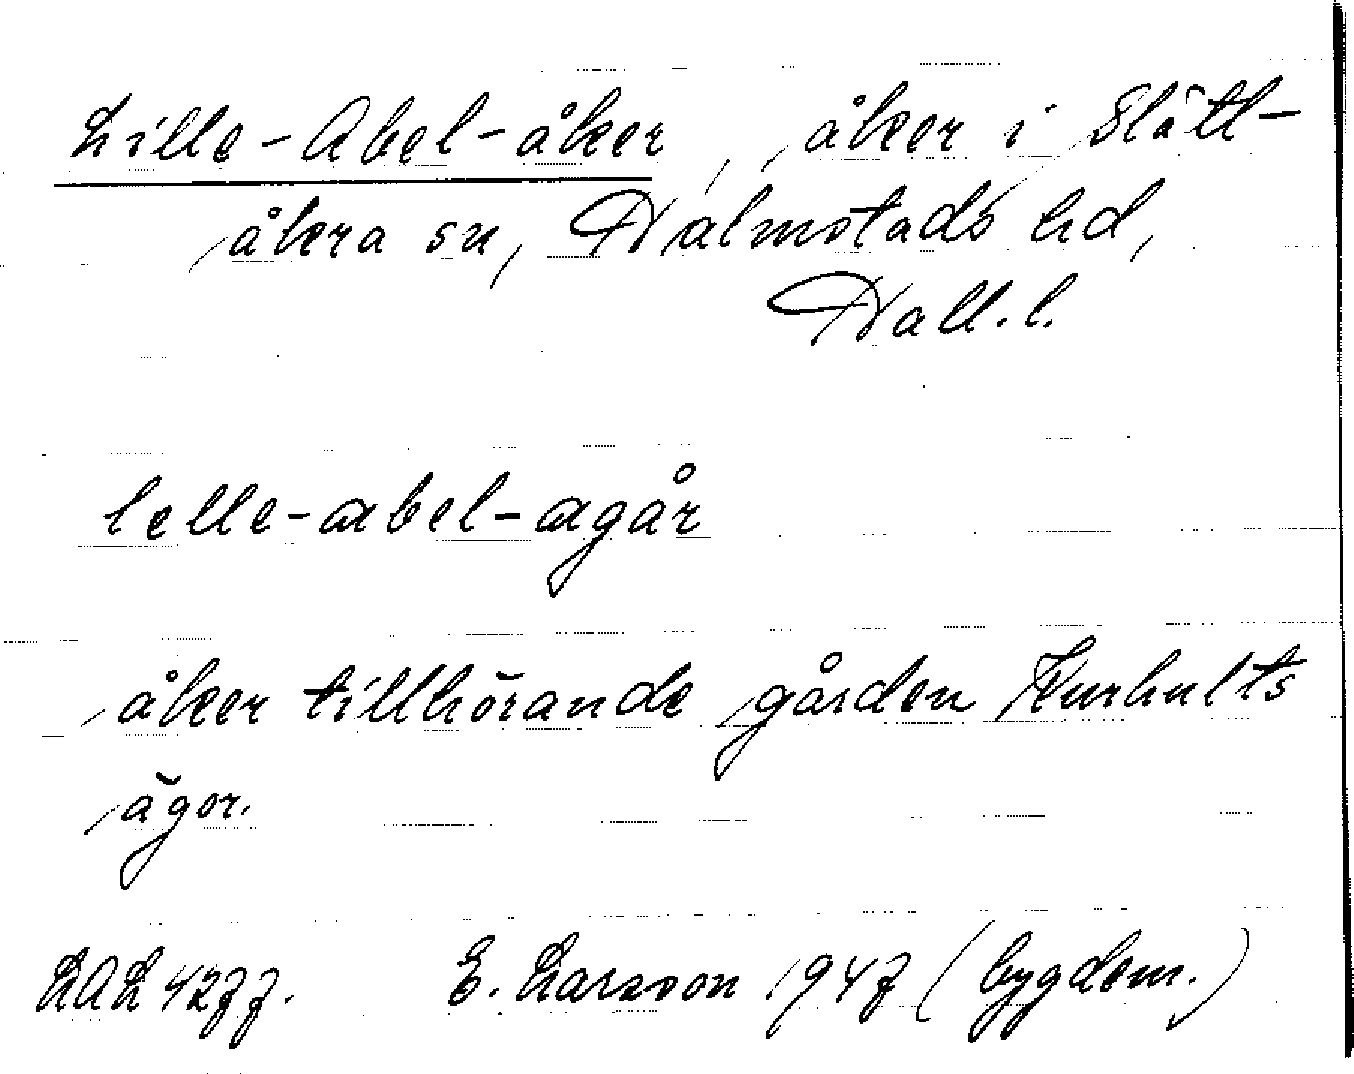 Lille-Abel-åker, åker i Slätt-
åkra sn, Halmstads hd,
Hall.l.
lelle-abel-agår
åker tillhörande gården Kurhults
ägor.
LAL 4277. E. Larsson 1947 (bygdem.)